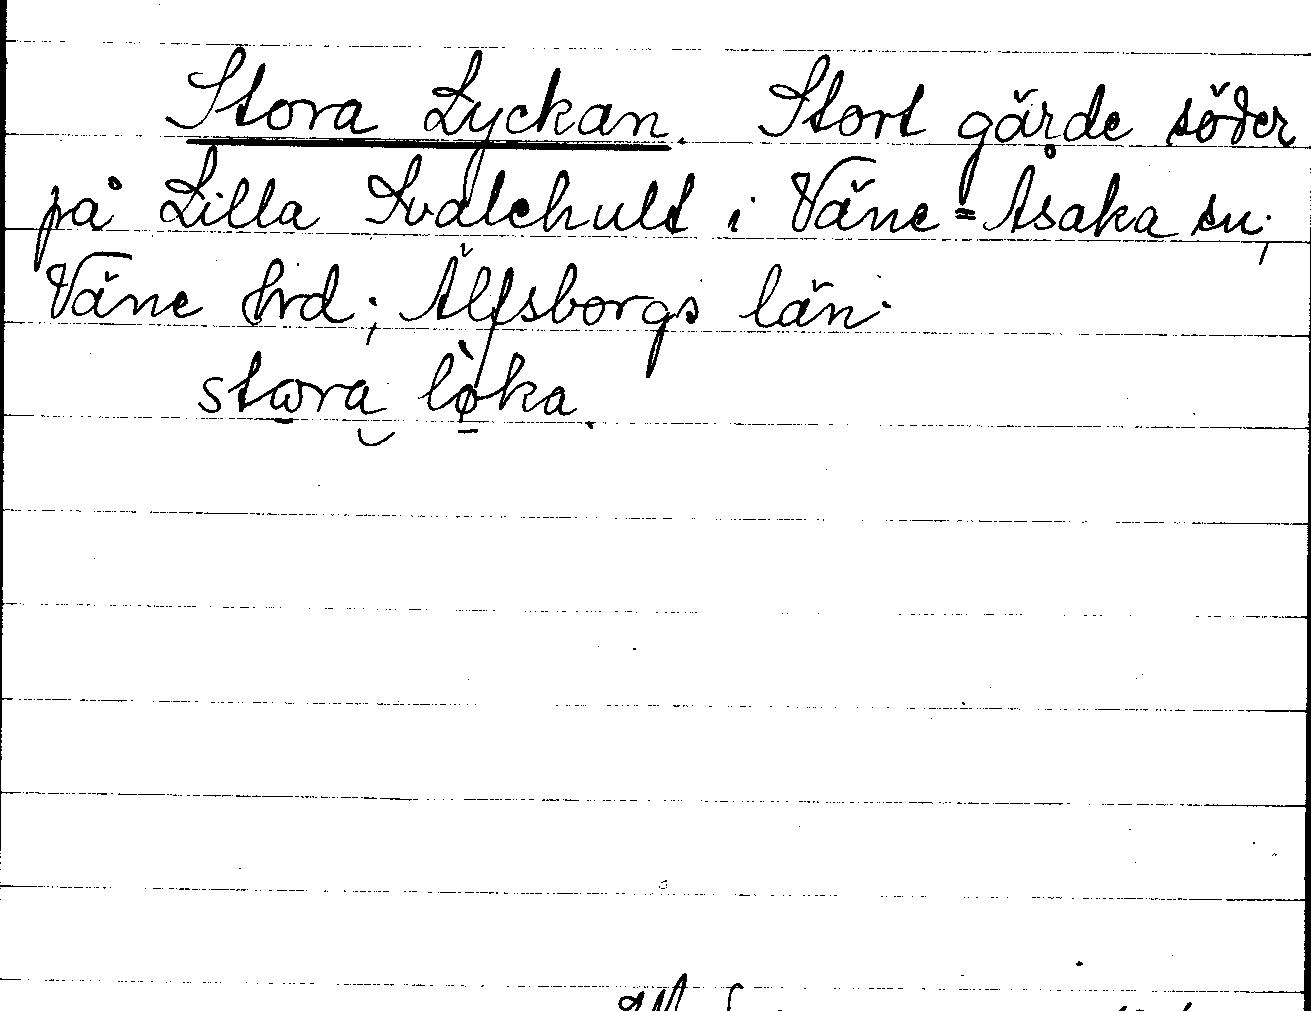 Stora Lyckan. Stort gärde söder
på Lilla Svaltehult i Väne=Åsaka sn;
Väne hrd; Älfsborgs län.
stωra løka.